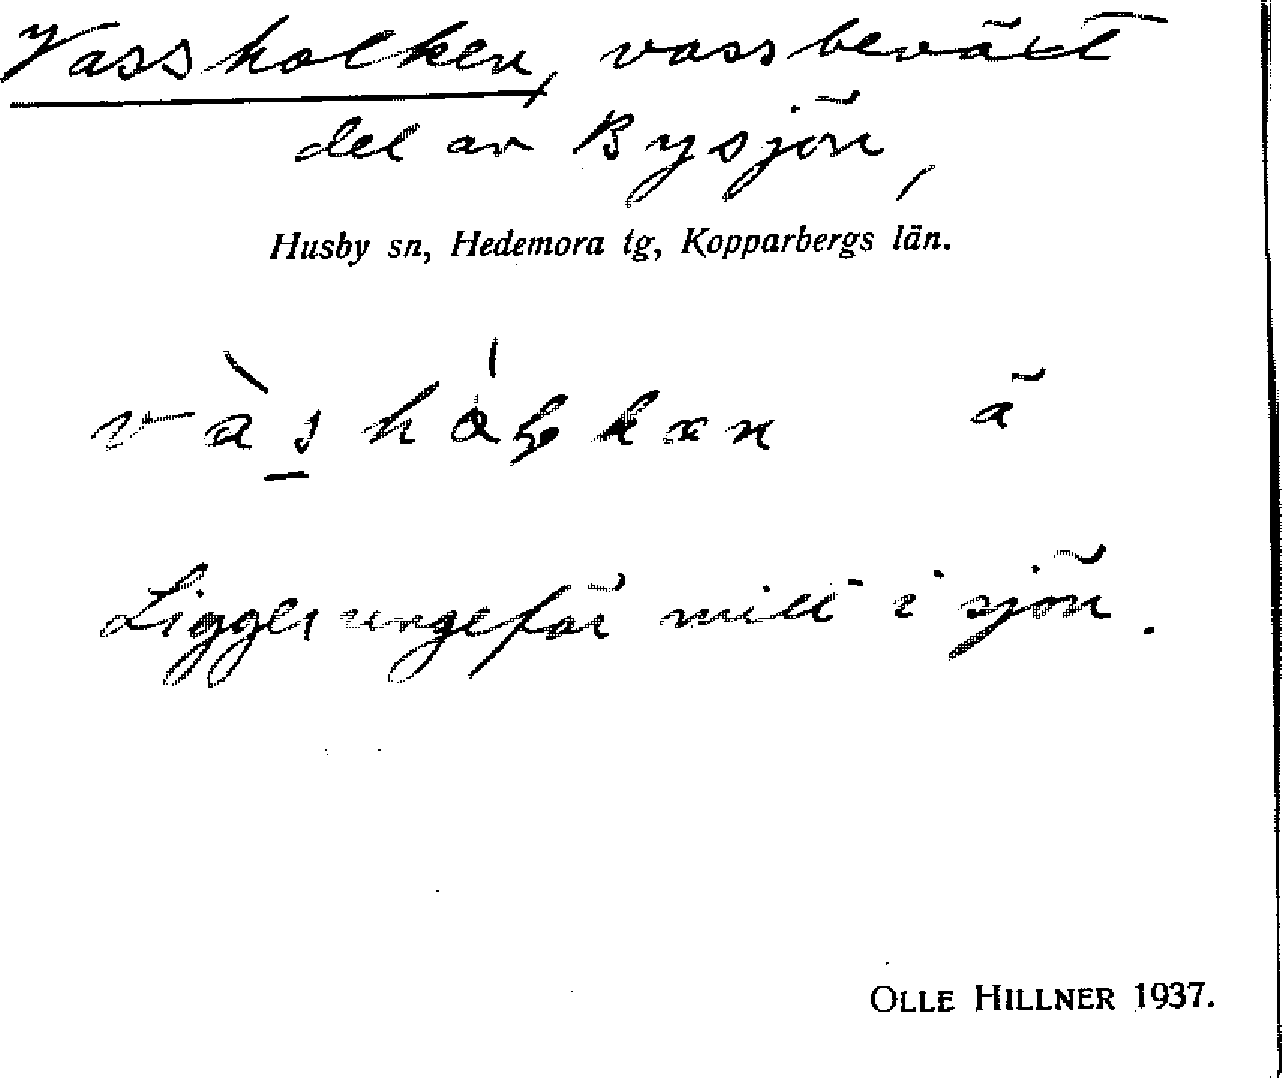 Vassholken, vassbeväxt
del av Bysjön,
Husby sn, Hedemora tg, Kopparbergs län.
ä
Ligger ungefär mitt i sjön.
OLLE HILLNER 1937.